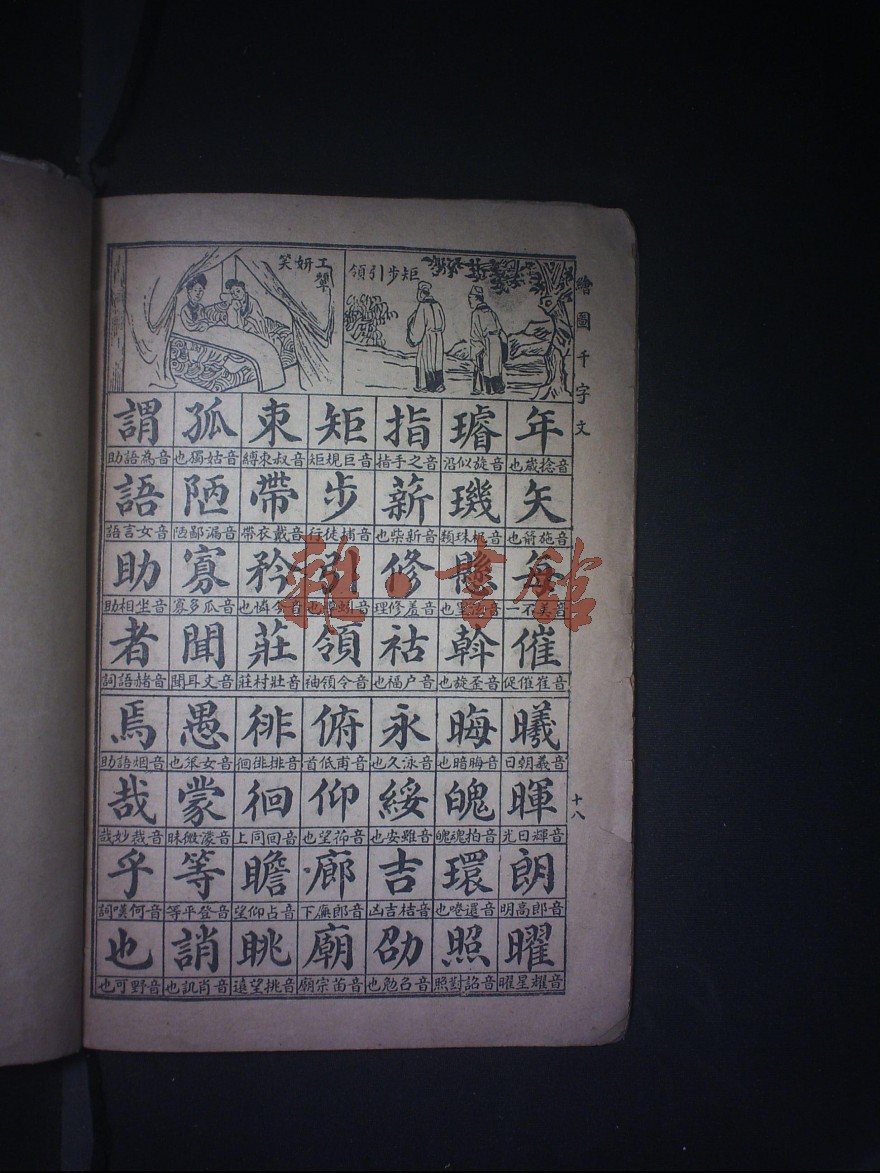 繪圖千字文
十八
矩步引領
工顰妍笑
年
音捻歲也
矢
音施箭也
每
音美不一
催
音崔催促
曦
音羲朝日
暉
音輝日光
朗
音郎高明
曜
音耀星曜
璿
音旋似沿
璣
音机珠類
懸
斡
音歪旋也
晦
音晦暗也
魄
音拍魂魄
環
音還也
照
音詔對照
指
音之手指
薪
音新柴也
修
音羞修理
祜
音户福也
永
音泳久也
綏
音雖安也
吉
音桔吉凶
劭
音召勉也
矩
音巨規矩
步
音捕徒行
引
領
音令領袖
俯
音甫低首
仰
音望也
廊
音郎廡下
廟
音苗宗廟
束
音叔束縛
帶
音戴衣帶
矜
音今憐也
莊
音壯村莊
徘
音排徘徊
徊
音回同上
瞻
音占仰望
眺
音挑望遠
孤
音姑獨也
陋
音漏鄙陋
寡
音瓜多寡
聞
音文耳聞
愚
音女笨也
蒙
音濛微昧
等
音登平等
誚
音肖也
謂
音為語助
語
音女言語
助
音坐相助
者
音赭語詞
焉
音烟語助
哉
音栽妙哉
乎
音何嘆詞
也
音野可也
雜·書館